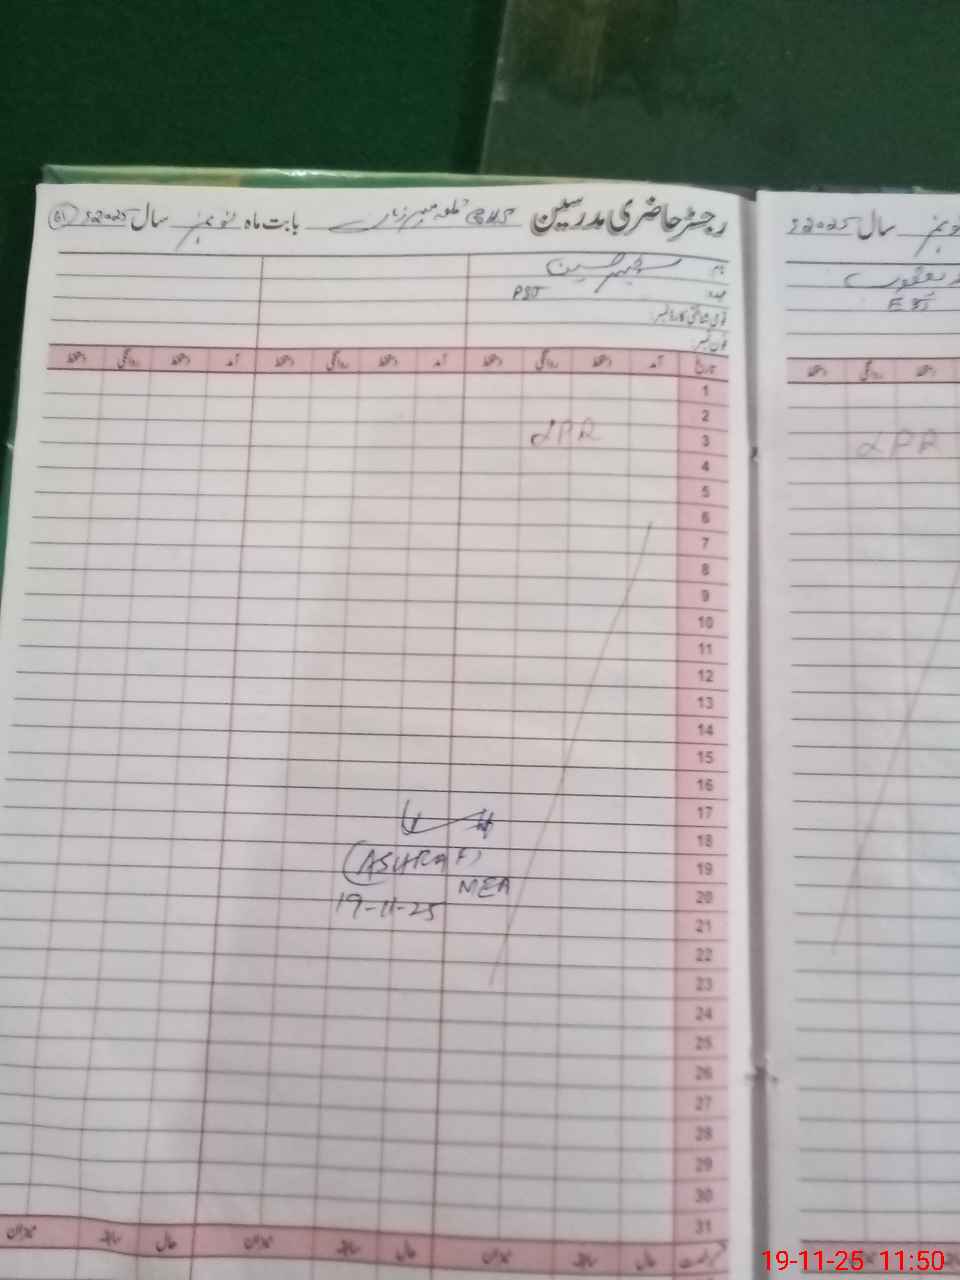 رجسٹر حاضری مدرسین GHS بابت ماہ نومبر سال 2025ء 61
نام
PST
عہدہ
قومی شناختی کارڈ نمبر
فون نمبر
تاریخ آمد دستخط روانگی دستخط آمد دستخط روانگی دستخط آمد دستخط روانگی دستخط
1
2
LPR
3
4
5
6
7
8
9
10
11
12
13
14
15
16
17
18
(ASHRAF)
19
MEA
20
19-11-25
21
22
23
24
25
26
27
28
29
30
31
حال سابقہ میزان حال سابقہ میزان حال سابقہ میزان
سال 2025ء
EST
دستخط روانگی دستخط
LPR
19-11-25 11:50